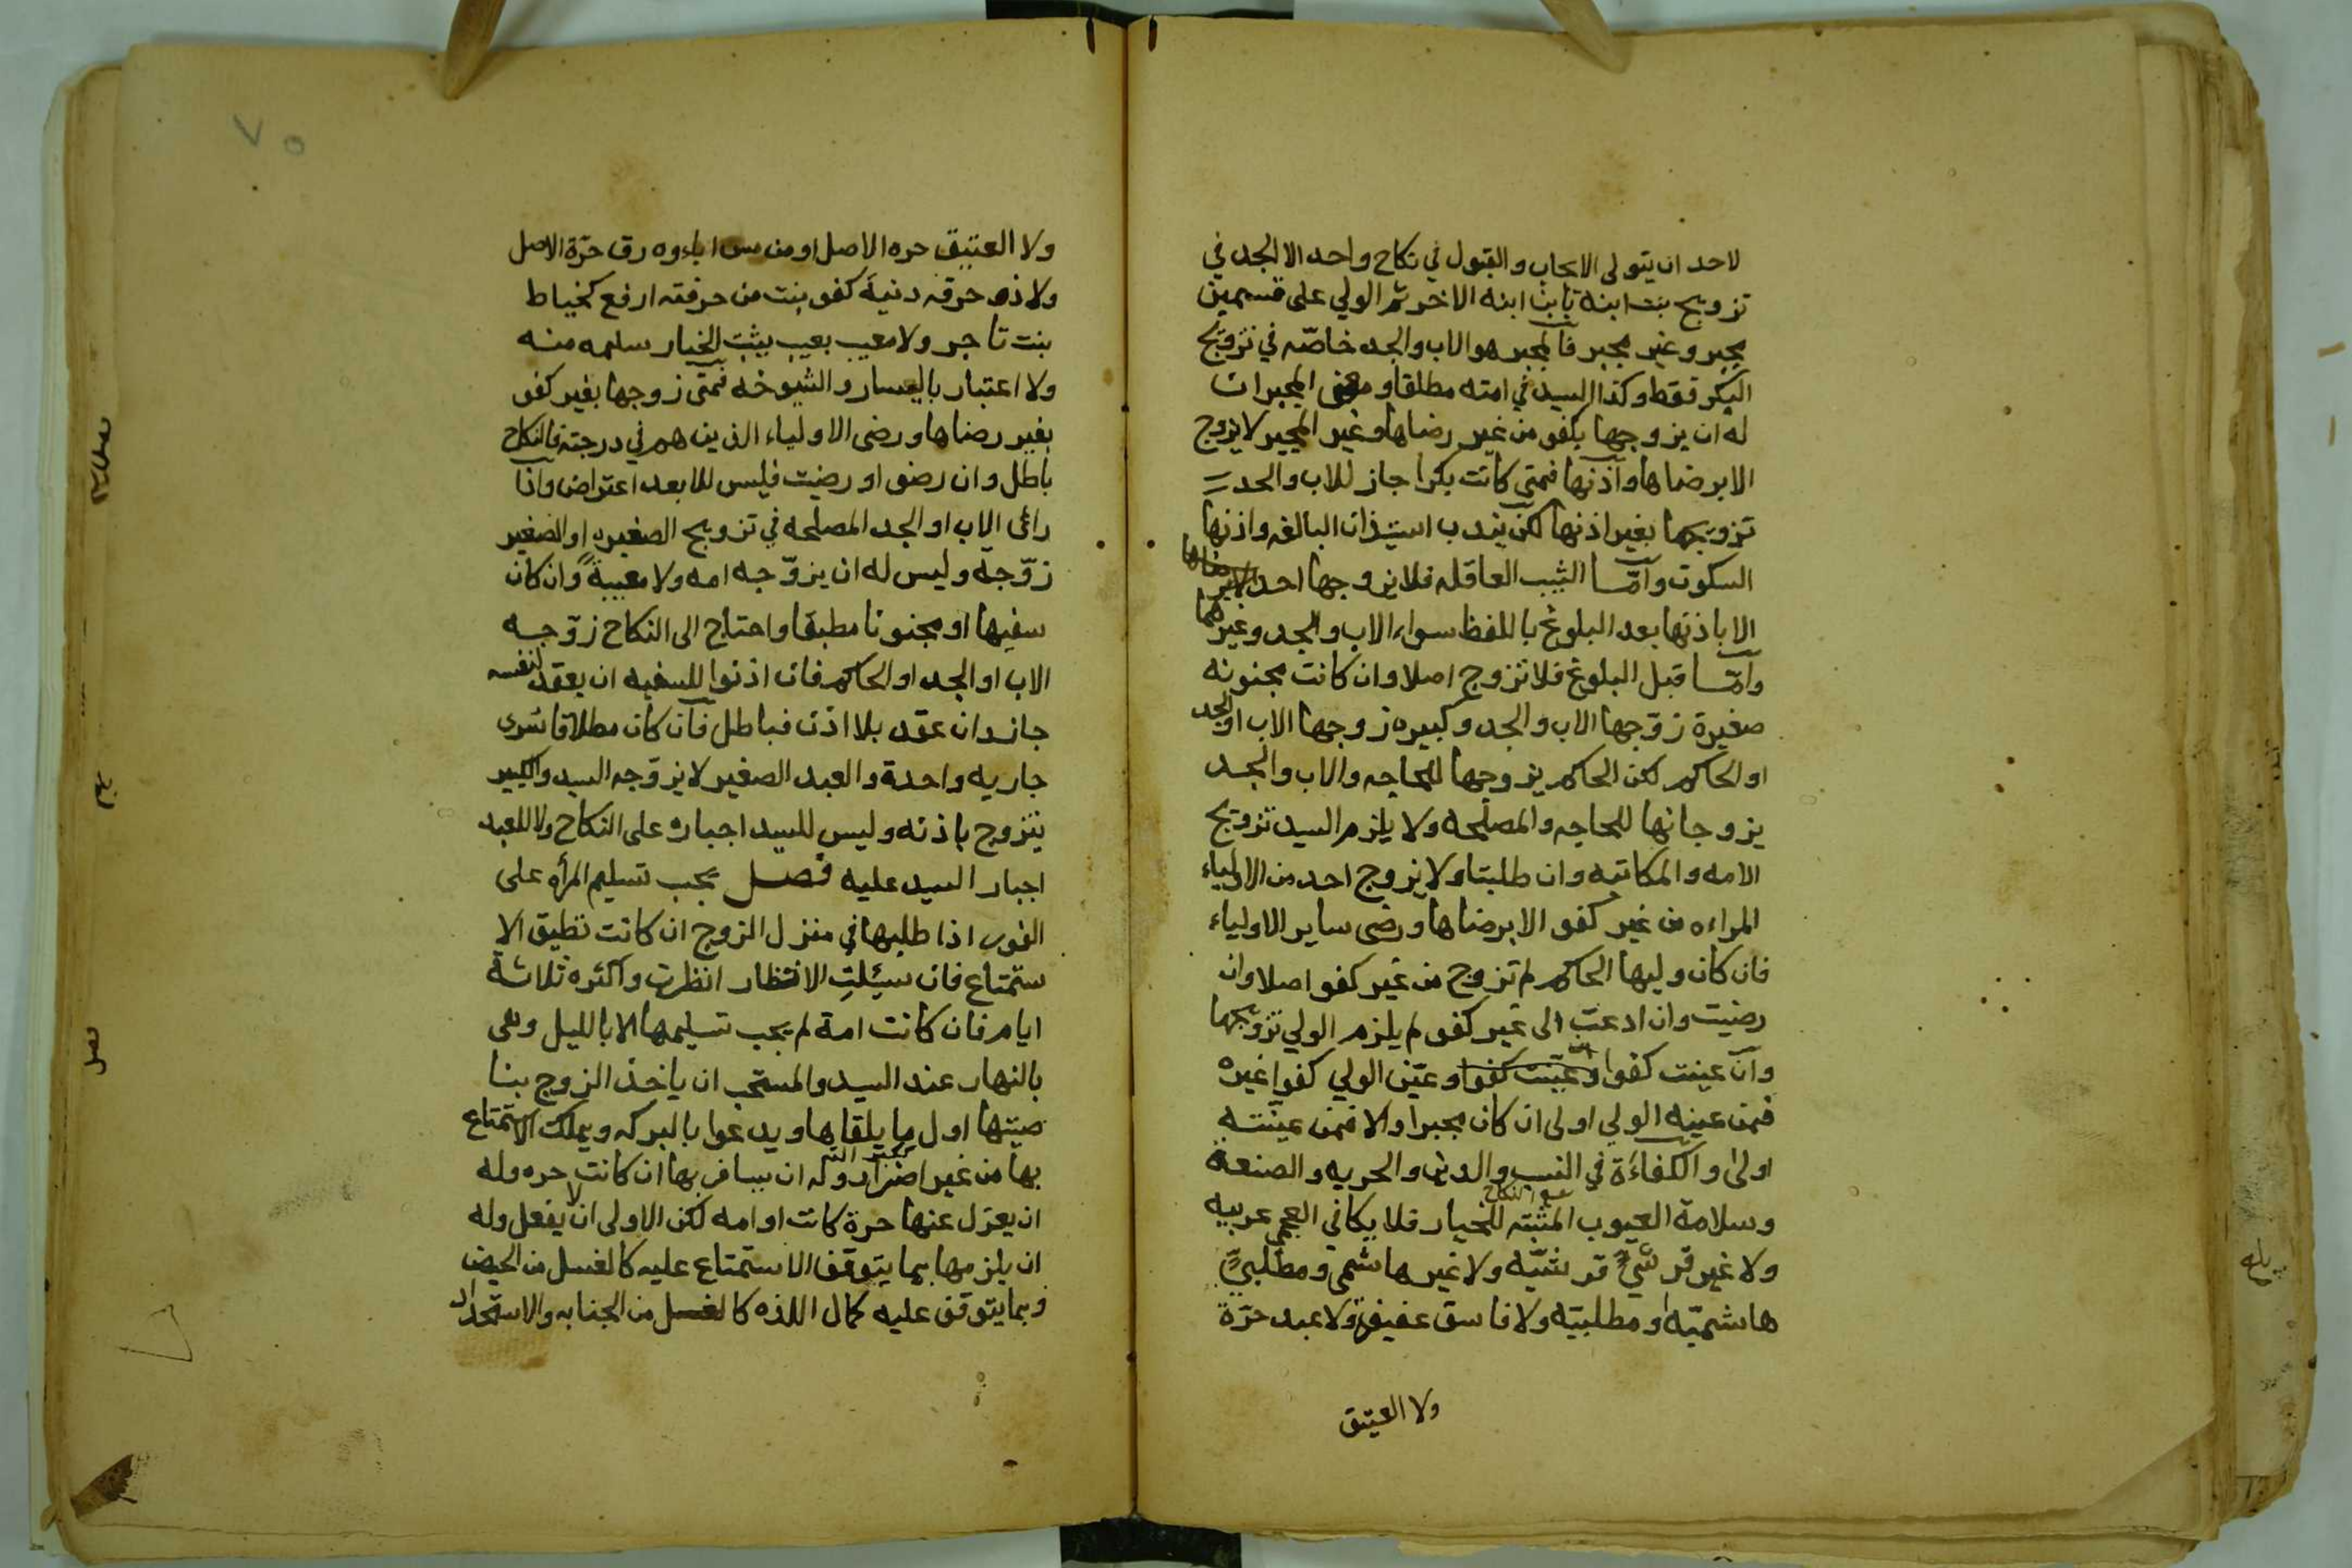 لاحد ان يتولى الايجاب والقبول في نكاح واحد الا الجد في
تزويج بنت ابنه بابن ابنه الاخر ثم الولي على قسمين
مجبر وغير مجبر فالمجبر هو الاب والجد خاصّه في تزويج
البكر فقط وكذا السيد في امته مطلقا ومعنى المجبر ان
له ان يزوجها بكفو من غير رضاها وغير المجبر لا يزوج
الا برضاها واذنها فمتى كانت بكرا جاز للاب والجد
تزويجها بغير اذنها لكن يندب استيذان البالغه واذنها
السكوت وامّا الثيب العاقله فلا يزوجها احد الا برضاها
الا باذنها بعد البلوغ باللفظ سواء الاب والجد وغيرهما
وامّا قبل البلوغ فلا تزوج اصلا وان كانت مجنونه
صغيرة زوّجها الاب والجد وكبيره زوجها الاب او الجد
او الحاكم لكن الحاكم يزوجها للحاجه والاب والجد
يزوجانها للحاجه والمصلحه ولا يلزم السيد تزويج
الامه والمكاتبه وان طلبتا ولا يزوج احد من الاولياء
المراءه من غير كفو الا برضاها ورضى ساير الاولياء
فان كان وليها الحاكم لم تزوج من غير كفو اصلا وان
رضيت وان ادعت الى غير كفو لم يلزم الولي تزويجها
وان عينت كفوا وعينت كفوا وعيّن الولي كفوا غيره
فمن عينه الولي اولى ان كان مجبرا والا فمن عينته
اولى والكفاءَة في النسب والدين والحريه والصنعة
وسلامة العيوب المثبته للخيار فلا يكافي العجمي عربيه
ولا غير قرشيٍّ قرشيّه ولا غير هاشمي ومطلبيٍّ
هاشميّه او مطلبيّه ولا فاسق عفيفة ولا عبد حرّة
ولا العتيق
٧٥
ولا العتيق حره الاصل او من مس اباءوه رق حرّة الاصل
ولا ذو حرفه دنيهَ كفو بنت من حرفته ارفع كخياط
بنت تاجر ولا معيب بعيب يثبت الخيار سليمه منه
ولا اعتبار باليسار والشيوخه فمتى زوجها بغير كفو
بغير رضاها ورضى الاولياء الذين هم في درجته فالنكاح
باطل وان رضو او رضيت فليس للابعد اعتراض واذا
رائى الاب او الجد المصلحه في تزويج الصغيره او الصغير
زوّجه وليس له ان يزوّجه امه ولا معيبةً وان كان
سفيها او مجنونا مطبقا واحتاج الى النكاح زوّجه
الاب او الجد او الحاكم فان اذنوا للسفيه ان يعقد لنفسه
جاز وان عقد بلا اذن فباطل فان كان مطلاقا تسرى
جاريه واحدة والعبد الصغير لا يزوّجه السيد والكبير
يتزوج باذنه وليس للسيد اجباره على النكاح ولا للعبد
اجبار السيد عليه فصل يجب تسليم المرأه على
الفور اذا طلبها في منزل الزوج ان كانت تطيق الا
ستمتاع فان سئلت الانتظار انظرت واكثره ثلاثة
ايام فان كانت امة لم يجب تسليمها الا بالليل وهى
بالنهار عند السيد والمستحب ان ياخذ الزوج بنا
صيتها اول ما يلقاها ويدعوا بالبركه ويملك الاستمتاع
بها من غير اضرار وله ان يسافر بها ان كانت حره وله
ان يعزل عنها حرة كانت او امه لكن الاولى ان لا يفعل وله
ان يلزمها بما يتوقف الاستمتاع عليه كالغسل من الحيض
وبما يتوقف عليه كمال اللذه كالغسل من الجنابه والاستحداد